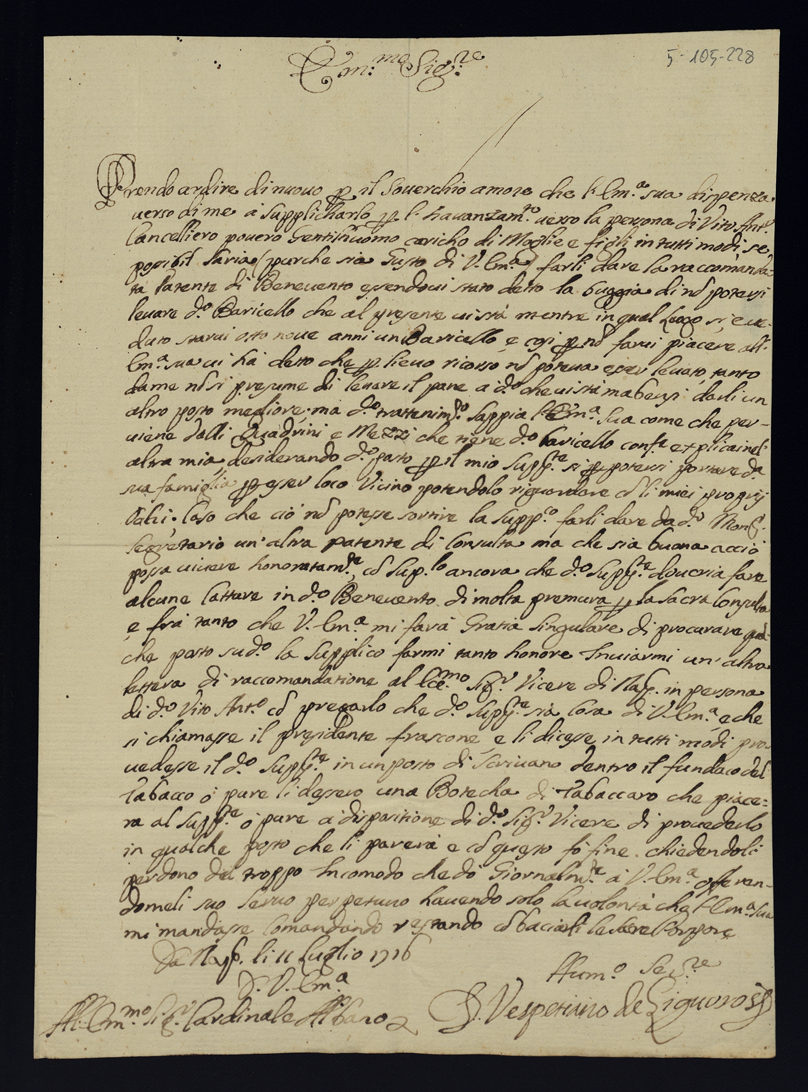 5-105-228
Em.mo Sig.re
Prendo ardire di nuovo p il soverchio amore che l'Em.a sua dispenza
verso di me à supplicharlo p l'havanzam.to verso la persona di Vito Ant.o
Cancelliero povero Gentilhuomo caricho di Moglie e figli in tutti modi se
possibil saria (purche sia Gusto di V. Em.a) farli dare la raccomanda-
ta Patente di Benevento essendoui stato detto la buggia di nō potersi
levare d.o Baricello che al presente ui stà mentre in quel luogo si è ue-
duto starui otto noue anni un Baricello e cosi p nō farui piacere all'
Em.a sua ui hà detto che p lieuo ricorso nō poteua esser leuato, tanto
dame nō si presume di leuare il pane a d.o che ui stà ma bensi darli un
altro posto megliore; mà d.o trattenim.to sappia l'Em.a sua come che per-
uiene dalli Quadrini e Mezzi che tiene d.o baricello conf.e
altra mia desiderando d.o posto p il mio Supp.te si p potersi portare d.a
sua famiglia p esser loco Vicino potendolo riguardare cō li miei proprij
Caso che ciò nō potesse sortire la supp.o farli dare da d.o Mons.r
Segretario un'altra patente di Consulta mà che sia buona acciò
possa uiuere honoratam.te, cō sup.lo ancora che d.o Supp.te doueria fare
alcune Catture in d.o Beneuento di molta premura p la sacra Consulta
e frà tanto che V. Em.a mi farà Gratia singulare di procurare qual-
che posto sud.o la supplico farmi tanto honore Inuiarmi un'altra
lettera di raccomandatione al Ecc.mo Sig.r Vicere di Nap. in persona
di d.o Vito Ant.o cō pregarlo che d.o Supp.te sia Cosa di V. Em.a e che
si chiamasse il presidente frascone e li dicesse in tutti modi pro-
uedesse il d.o Supp.te in un posto di scriuano dentro il fundaco del
tabacco ò pure li dassero una Botecha di tabaccaro che piace-
rà al Supp.te ò pure à dispositione di d.o Sig.r Vicere di prouederlo
in qualche posto che li parerà e cō questo fò fine chiedendoli
perdono del troppo Incomodo che dò Giornalm.te à V. Em.a offeren-
domeli suo seruo perpetuo hauendo solo la uolontà che l'Em.a sua
mi mandasse Comandando restando cō baciarli le sacre Porpore
Da Nap. li 11 Luglio 1716
D. V. Em.a
Hum.o Se.re
All' Em.mo Sig.r Cardinale Albano
D. Vespesiano de Liguoro